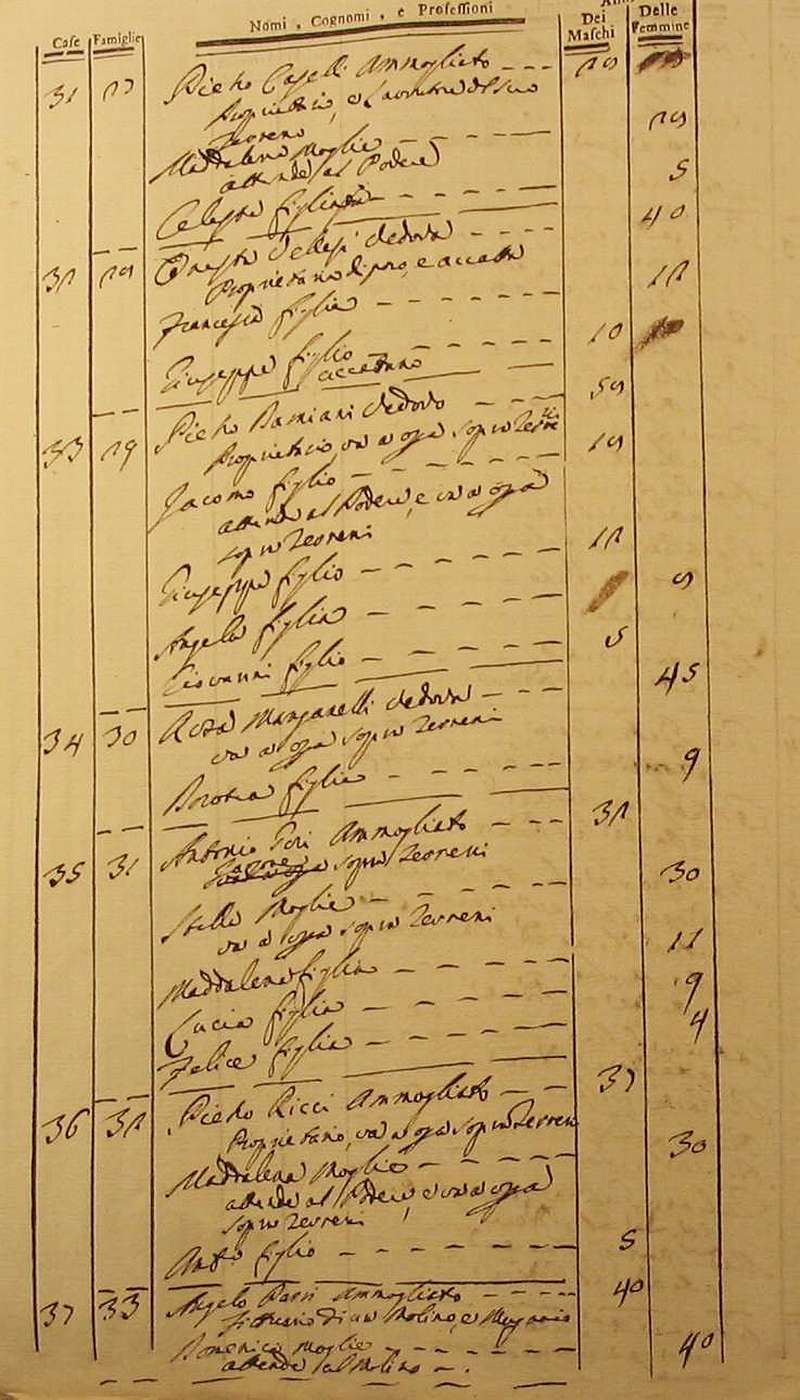 Case Famiglie Nomi, Cognomi, e Professioni Anni
Dei Maschi Delle Femmine
31 27 Pietro Caselli Ammogliato 29
Proprietario, e Lavora del suo
Terreno
Maddalena Moglie 29
attende al Podere
Celeste figlia 5
32 Vedova 40
Proprietaria di pro, e accatta
Francesca figlia 12
Giuseppe figlio 10
accattano
33 29 Pietro Damiani Vedovo 59
Proprietario, va a opa sop.a Terreni
Jacomo figlio 19
attende al Podere, e va a opa
sop.a Terreni
Giuseppe figlio 12
Angela figlia 9
Giovanni figlio 5
34 30 Rosa Manganelli Vedova 45
va a opa sop.a Terreni
figlia 9
35 31 Antonio Gori Ammogliato 32
sop.a Terreni
Stella Moglie 30
va a opa sop.a Terreni
Maddalena figlia 11
Lucia figlia 9
Felice figlia 4
36 32 Pietro Ricci Ammogliato 37
Proprietario, va a opa sop.a Terreni
Maddalena Moglie 30
attende al Podere, e va a opa
sop.a Terreni
Ant.o figlio 5
37 33 Angelo Ammogliato 40
di un Molino, e Mugnaio
Domenica Moglie 40
attende al Molino